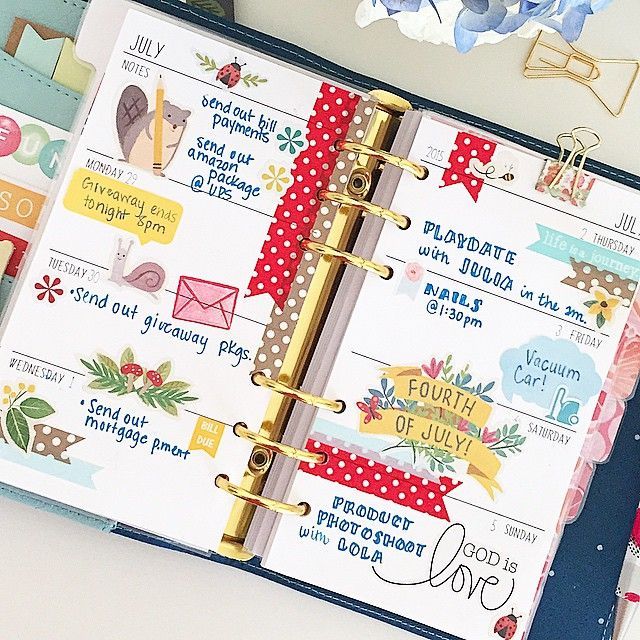 FUN
SO
JULY
NOTES
send out bill
payments
send out
amazon
package
@ UPS
MONDAY 29
Giveaway ends
tonight 8pm
TUESDAY 30
• Send out giveaway pkgs.
WEDNESDAY 1
• Send out
mortgage pment
BILL
DUE
2015
JULY
2 THURSDAY
life is a journey
PLAYDATE
with JULIA in the am.
NAILS
@1:30pm
3 FRIDAY
Vacuum
Car!
FOURTH
OF JULY!
SATURDAY
5 SUNDAY
PRODUCT
PHOTOSHOOT
with LOLA
GOD is
love